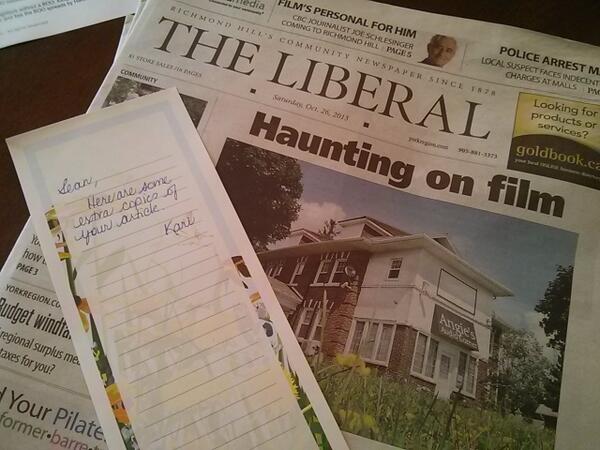 media
FILM'S PERSONAL FOR HIM
CBC JOURNALIST JOE SCHLESINGER
COMING TO RICHMOND HILL | PAGE 5
POLICE ARREST M
LOCAL SUSPECT FACES INDECENT
CHARGES AT MALLS | PAG
RICHMOND HILL'S COMMUNITY NEWSPAPER SINCE 1878
THE LIBERAL
$1 STORE SALES /
PAGES
Saturday, Oct. 26, 2013
yorkregion.com
905-881-3373
Looking for
products or
services?
goldbook.ca
your local ONLINE business directory
COMMUNITY
Haunting on film
Angie's
Sean,
Here are some
extra copies of
your article.
Kari
You
how t
PAGE 3
YORKREGION.CO
Budget windfa
regional surplus me
taxes for you?
d Your Pilate
former•barre•